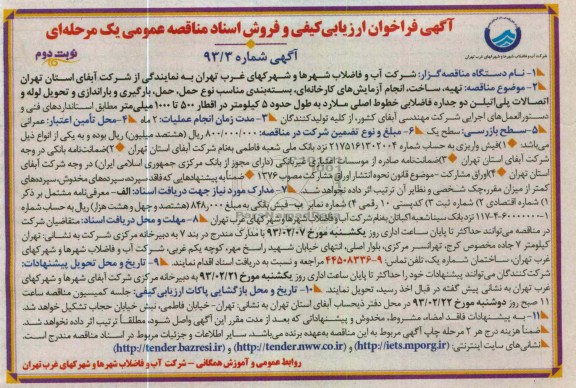 آگهی فراخوان ارزیابی‌کیفی و فروش اسناد مناقصه عمومی یک مرحله‌ای
آگهی شماره ۹۳/۳
نوبت دوم
شرکت آب و فاضلاب شهرها و شهرکهای غرب تهران
۱- نام دستگاه مناقصه‌گزار: شرکت آب و فاضلاب شهرها و شهرکهای غرب تهران به نمایندگی از شرکت آبفای استان تهران
۲- موضوع مناقصه: تهیه، ساخت، انجام آزمایش‌های کارخانه‌ای، بسته‌بندی مناسب نوع حمل، حمل، بارگیری و باراندازی و تحویل لوله و
اتصالات پلی‌اتیلن دو جداره فاضلابی خطوط اصلی ملارد به طول حدود ۵ کیلومتر در اقطار ۵۰۰ تا ۱۰۰۰ میلی‌متر مطابق استانداردهای فنی و
دستورالعمل‌های اجرایی شرکت مهندسی آبفای کشور، از کلیه تولیدکنندگان ۳- مدت زمان انجام عملیات: ۲ ماه ۴- محل تأمین اعتبار: عمرانی
۵- سطح بازرسی: سطح یک ۶- مبلغ و نوع تضمین شرکت در مناقصه: ۸۰۰/۰۰۰/۰۰۰ ریال (هشتصد میلیون) ریال بوده و به یکی از انواع ذیل
می‌باشد: ۱)فیش واریزی به حساب ۲۱۷۵۱۶۱۳۰۲۰۰۴ نزد بانک ملی شعبه فاطمی بنام شرکت آبفای استان تهران ۲)ضمانت‌نامه بانکی در وجه
شرکت آبفای استان تهران ۳)ضمانت‌نامه صادره از موسسات اعتباری غیربانکی (دارای مجوز از بانک مرکزی جمهوری اسلامی ایران) در وجه شرکت آبفای
استان تهران ۴)اوراق مشارکت - موضوع قانون نحوه انتشار اوراق مشارکت مصوب ۱۳۷۶ ضمناً به پیشنهادهایی که فاقد سپرده، سپرده‌های مخدوش، سپرده‌های
کمتر از میزان مقرر، چک شخصی و نظایر آن ترتیب اثر داده نخواهد شد. ۷- مدارک مورد نیاز جهت دریافت اسناد: الف - معرفی‌نامه مشتمل بر ذکر
۱) شماره اقتصادی ۲) شماره ثبت ۳) کدپستی ۱۰ رقمی ۴) شماره نمابر ب- فیش بانکی به مبلغ ۸۴۸٬۰۰۰ ریال (هشتصد و چهل و هشت هزار) ریال به حساب شماره
۱-۱۱۷-۴۰۶۰۰۰۰۰۰ نزد بانک سینا شعبه اکباتان بنام شرکت آب و فاضلاب شهرها و شهرکهای غرب تهران ۸- مهلت و محل دریافت اسناد: متقاضیان شرکت
در مناقصه می‌توانند حداکثر تا پایان ساعت اداری روز یکشنبه مورخ ۹۳/۰۲/۰۷ با مدارک مندرج در بند ۷ به دبیرخانه مرکزی شرکت به نشانی: تهران
کیلومتر ۷ جاده مخصوص کرج، تهرانسر مرکزی، بلوار اصلی، انتهای خیابان شهید راسخ مهر، کوچه یکم غربی، شرکت آب و فاضلاب شهرها و شهرکهای
غرب تهران، ساختمان شماره یک، تلفن تماس: ۹-۴۴۵۰۸۳۳۶ مراجعه و نسبت به دریافت اسناد اقدام نمایند. ۹- تاریخ و محل تحویل پیشنهادات:
شرکت‌کنندگان می‌توانند پیشنهادات خود را حداکثر تا پایان ساعت اداری روز یکشنبه مورخ ۹۳/۰۲/۲۱ به دبیرخانه مرکزی شرکت آبفای شهرها و شهرکهای
غرب تهران به نشانی پیش گفته در قبال اخذ رسید، تحویل نمایند. ۱۰- تاریخ و محل بازگشایی پاکات ارزیابی کیفی: جلسه کمیسیون مناقصه ساعت
۱۱ صبح روز دوشنبه مورخ ۹۳/۰۲/۲۲ در محل دفتر ذیحساب آبفای استان تهران به نشانی: تهران- خیابان فاطمی، نبش خیابان حجاب تشکیل خواهد شد.
۱۱- به پیشنهادات فاقد امضاء، مشروط، مخدوش و پیشنهاداتی که بعد از مدت مقرر این آگهی واصل شود، مطلقاً ترتیب اثر داده نخواهد شد.
ضمناً هزینه درج هر ۲ مرحله چاپ آگهی مربوط به این مناقصه به‌عهده برنده می‌باشد. سایر اطلاعات و جزئیات مربوط در اسناد مناقصه مندرج است.
نشانی‌های سایت اینترنتی: (http://iets.mporg.ir) و (http://tender.nww.co.ir) و (http://tender.bazresi.ir)
روابط عمومی و آموزش همگانی - شرکت آب و فاضلاب شهرها و شهرکهای غرب تهران